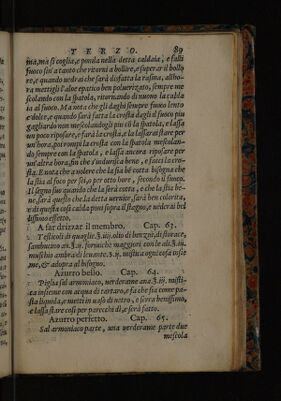 TERZO. 89
ma, ma si coglia, e ponila nella detta caldaia, e falli
fuoco sin' a tanto che ritorni a bollire, e superar il bollo
re, e quando vedrai che sarà disfatta la rasina, allho-
ra mettigli l'aloe epatico ben poluerizato, sempre me
scolando con la spatola, ritornando di nuouo la caldaia
al fuoco. Ma nota che gli daghi sempre fuoco lento
e dolce, e quando sarà fatta la crosta dagli il fuoco piu
gagliardo non mescolandogli piu cō la spatola, e lassa
un poco riposare, e farà la crosta, e la lassarai stare per
un' hora, poi rompi la crosta con la spatola mescolan-
do sempre con la spatola, e lassa ancora riposare per
un' altra hora, fin che s'indurisca bene, e facci la cro-
sta. E nota che a uolere che sia bē cotta bisogna che
la stia al foco per sei, o per otto hore, secondo il fuoco.
Il segno sia quando che la serà cotta, e che la stia be-
ne, sarà questo che la detta uernice, sarà ben colorita,
e di questa cosi calda poni sopra il stagno, e uederai bel
lissimo effetto.
A far drizzar il membro. Cap. 63.
Testicoli di quaglie. ʒ. iij. olio di bengiui, di storace,
sambucino an. ʒ. ij. formiche maggiori con le ali. ʒ. iij.
muschio ambra di leuante. ʒ. ij. mistica ogni cosa insie
me, & adopra al bisogno.
Azurro bello. Cap. 64.
Piglia sal armoniaco, verderame ana. ʒ. iij. misti-
ca insieme con acqua di tartaro, e fa che sia come pa-
sta liquida, e metti in uaso di uetro, e serra benissimo,
e lassa stare cosi per parecchi dì, e serà fatto.
Azurro perfetto. Cap. 65.
Sal armoniaco parte, una verderame parte due
mescola